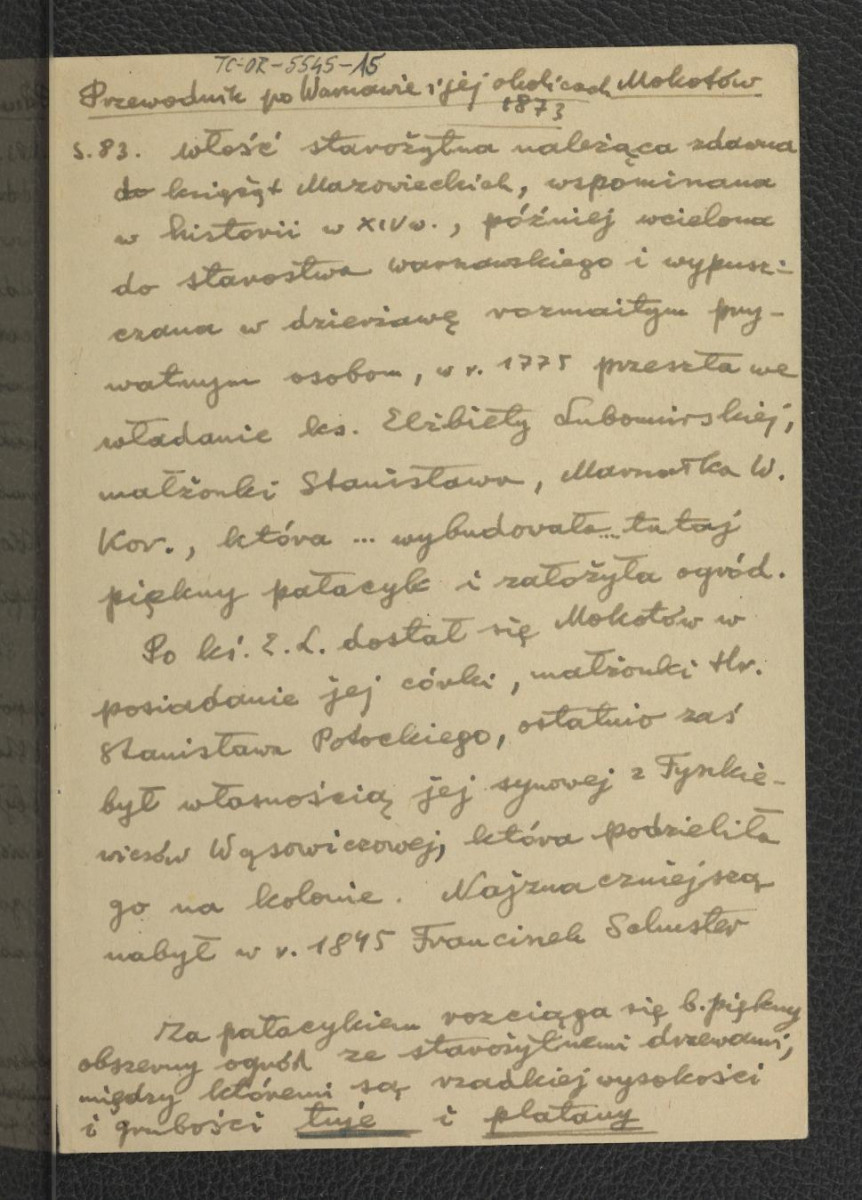 TC-OR-5545-15
Przewodnik po Warszawie i jej okolicach Mokotów
1873
s. 83. włość starożytna należąca zdawna
do książąt Mazowieckich, wspominana
w historii w XIV w., później wcielona
do starostwa warszawskiego i wypusz-
czana w dzierżawę rozmaitym pry-
watnym osobom, w r. 1775 przeszła we
władanie ks. Elżbiety Lubomirskiej,
małżonki Stanisława, Marszałka W.
Kor., która ... wybudowała ... tutaj
piękny pałacyk i założyła ogród.
Po ks. E. L. dostał się Mokotów w
posiadanie jej córki, małżonki Hr.
Stanisława Potockiego, ostatnio zaś
był własnością jej synowej z Tyszkie-
wiczów Wąsowiczowej, która podzieliła
go na kolonie. Najznaczniejszą
nabył w r. 1845 Franciszek Schuster
Za pałacykiem rozciąga się b. piękny
obszerny ogród ze starożytnemi drzewami,
między któremi są rzadkiej wysokości
i grubości tuje i platany